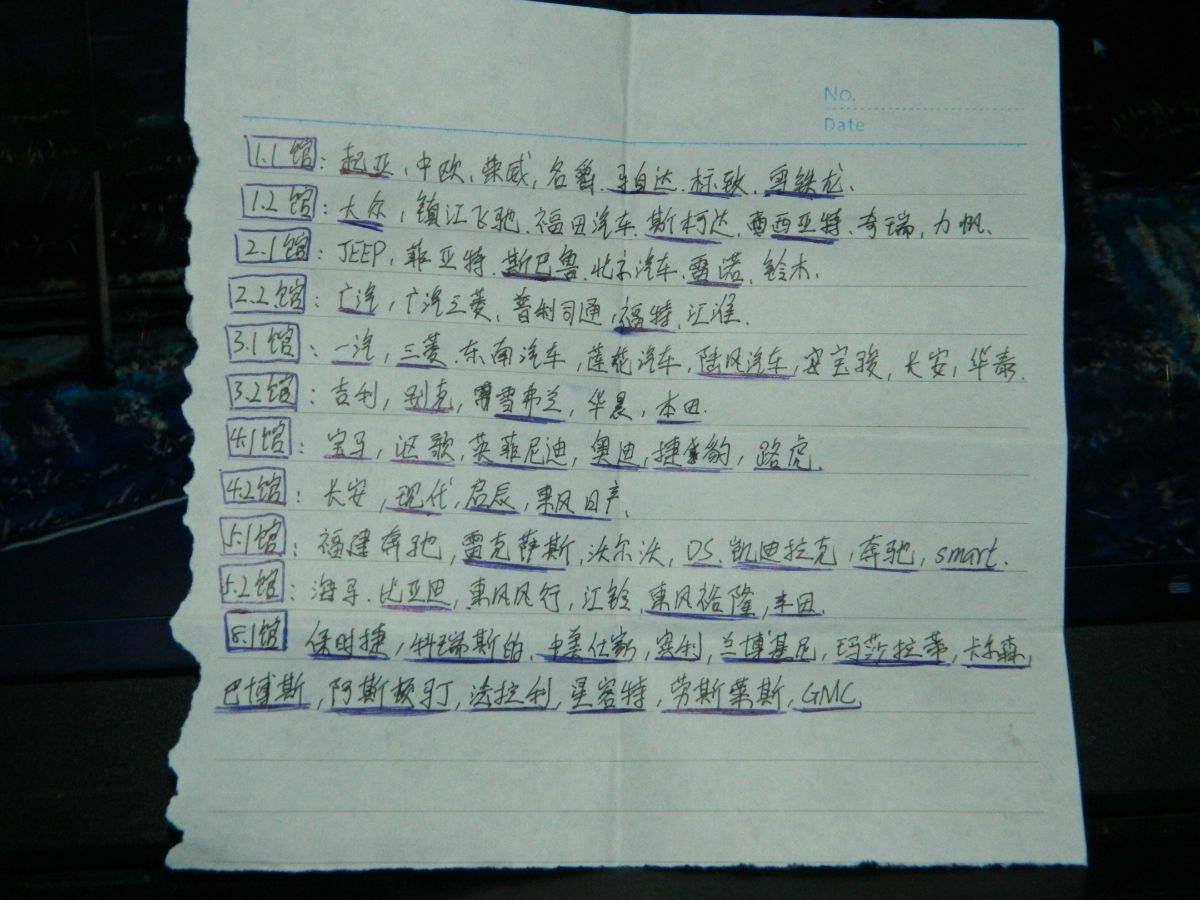 No.
Date
1.1馆：起亚、中欧、荣威、名爵、马自达、标致、雪铁龙、
1.2馆：大众，镇江飞驰、福田汽车、斯柯达、西亚特、奇瑞，力帆、
2.1馆：JEEP，菲亚特、斯巴鲁、北京汽车、雷诺、铃木、
2.2馆：广汽，广汽三菱、普利司通，福特，江淮、
3.1馆：一汽，三菱、东南汽车，莲花汽车，陆风汽车，宝骏，长安，华泰．
3.2馆：吉利，别克，雪弗兰，华晨，本田．
4.1馆：宝马，讴歌，英菲尼迪，奥迪，捷豹，路虎、
4.2馆：长安，现代，启辰，东风日产、
5.1馆：福建奔驰，雷克萨斯，沃尔沃，DS、凯迪拉克，奔驰，smart．
5.2馆：海马、比亚迪，东风风行，江铃，东风裕隆，丰田、
8.1馆 保时捷，科瑞斯的、中美仕家，宾利，兰博基尼，玛莎拉蒂，卡尔森，
巴博斯，阿斯顿马丁，法拉利，星客特，劳斯莱斯，GMC